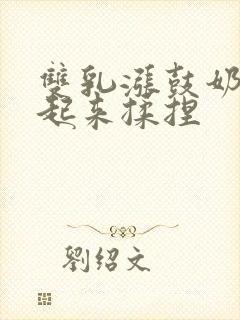 雙乳漲鼓奶
起来揉捏
劉绍文